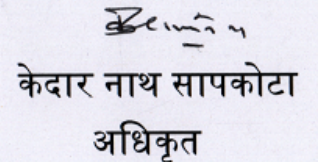 केदार नाथ सापकोटा
अधिकृत